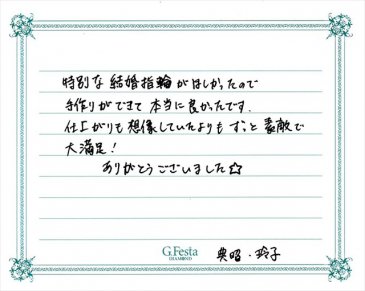 特別な結婚指輪がほしかったので
手作りができて本当に良かったです.
仕上がりも想像していたよりもずっと素敵で
大満足!
ありがとうございました☆
G.Festa
DIAMOND
典昭・玲子